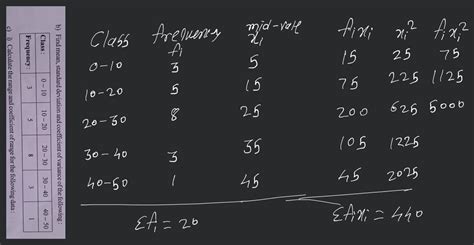 b) Find mean, standard deviation and coefficient of variance of the following :
Class : 0-10 10-20 20-30 30-40 40-50
Frequency : 3 5 8 3 1
c) i) Calculate the range and coefficient of range for the following data :
Class frequency mid-vale fixi xi² fixi²
fi xi
0-10 3 5 15 25 75
10-20 5 15 75 225 1125
20-30 8 25 200 625 5000
30-40 3 35 105 1225
40-50 1 45 45 2025
Σfi = 20 Σfixi = 440